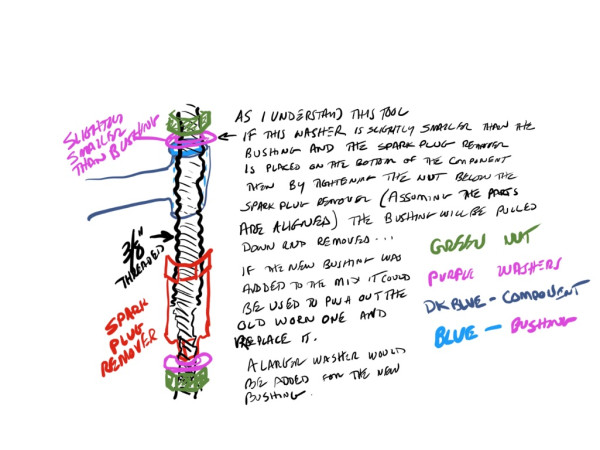 SLIGHTLY
SMALLER
THAN BUSHING
3/8"
THREADED
SPARK
PLUG
REMOVER
AS I UNDERSTAND THIS TOOL
IF THIS WASHER IS SLIGHTLY SMALLER THAN THE
BUSHING AND THE SPARK PLUG REMOVER
IS PLACED ON THE BOTTOM OF THE COMPONENT
THEN BY TIGHTENING THE NUT BELOW THE
SPARK PLUG REMOVER (ASSUMING THE PARTS
ARE ALIGNED) THE BUSHING WILL BE PULLED
DOWN AND REMOVED...
IF THE NEW BUSHING WAS
ADDED TO THE MIX IT COULD
BE USED TO PUSH OUT THE
OLD WORN ONE AND
REPLACE IT.
A LARGER WASHER WOULD
BE ADDED FOR THE NEW
BUSHING.
GREEN NUT
PURPLE WASHERS
DK BLUE - COMPONENT
BLUE - BUSHING